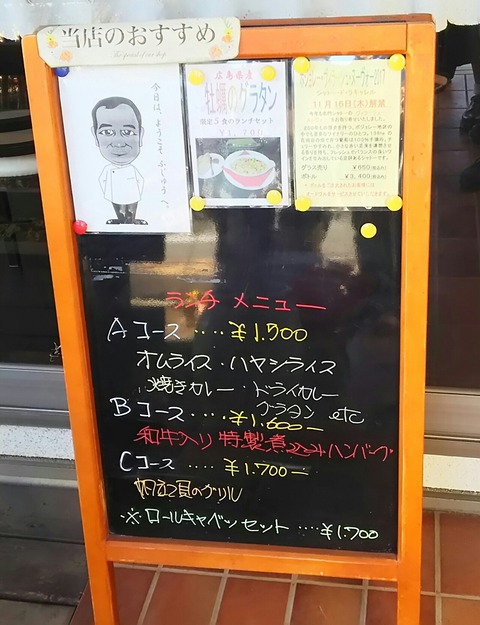 当店のおすすめ
The special of our shop
今日は、ようこそ、ふじゅうへ。
広島県産
牡蠣のグラタン
限定5食のランチセット
¥1,700
ボジョレー・ヴィラージュ・ヌーヴォー2017
11月16日(木)解禁
グラス売り ¥650(税込み)
ボトル ¥3,400(税込み)
ランチ メニュー
Aコース ‥‥ ¥1.500
オムライス・ハヤシライス
焼きカレー・ドライカレー
グラタン etc
Bコース ‥‥ ¥1.600ー
和牛入り 特製煮込みハンバーグ
Cコース ‥‥ ¥1.700ー
のグリル
※ロールキャベツセット ‥‥ ¥1.700